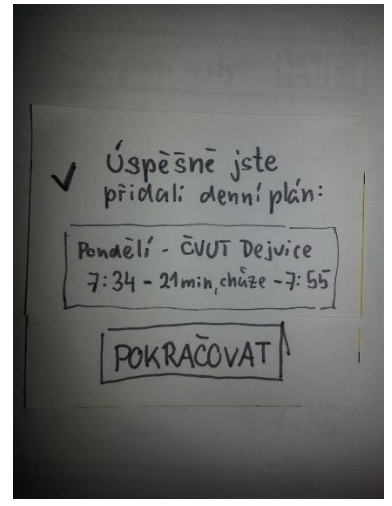 ✓ Úspěšně jste
přidali denní plán:
Pondělí - ČVUT Dejvice
7:34 - 21min, chůze - 7:55
POKRAČOVAT